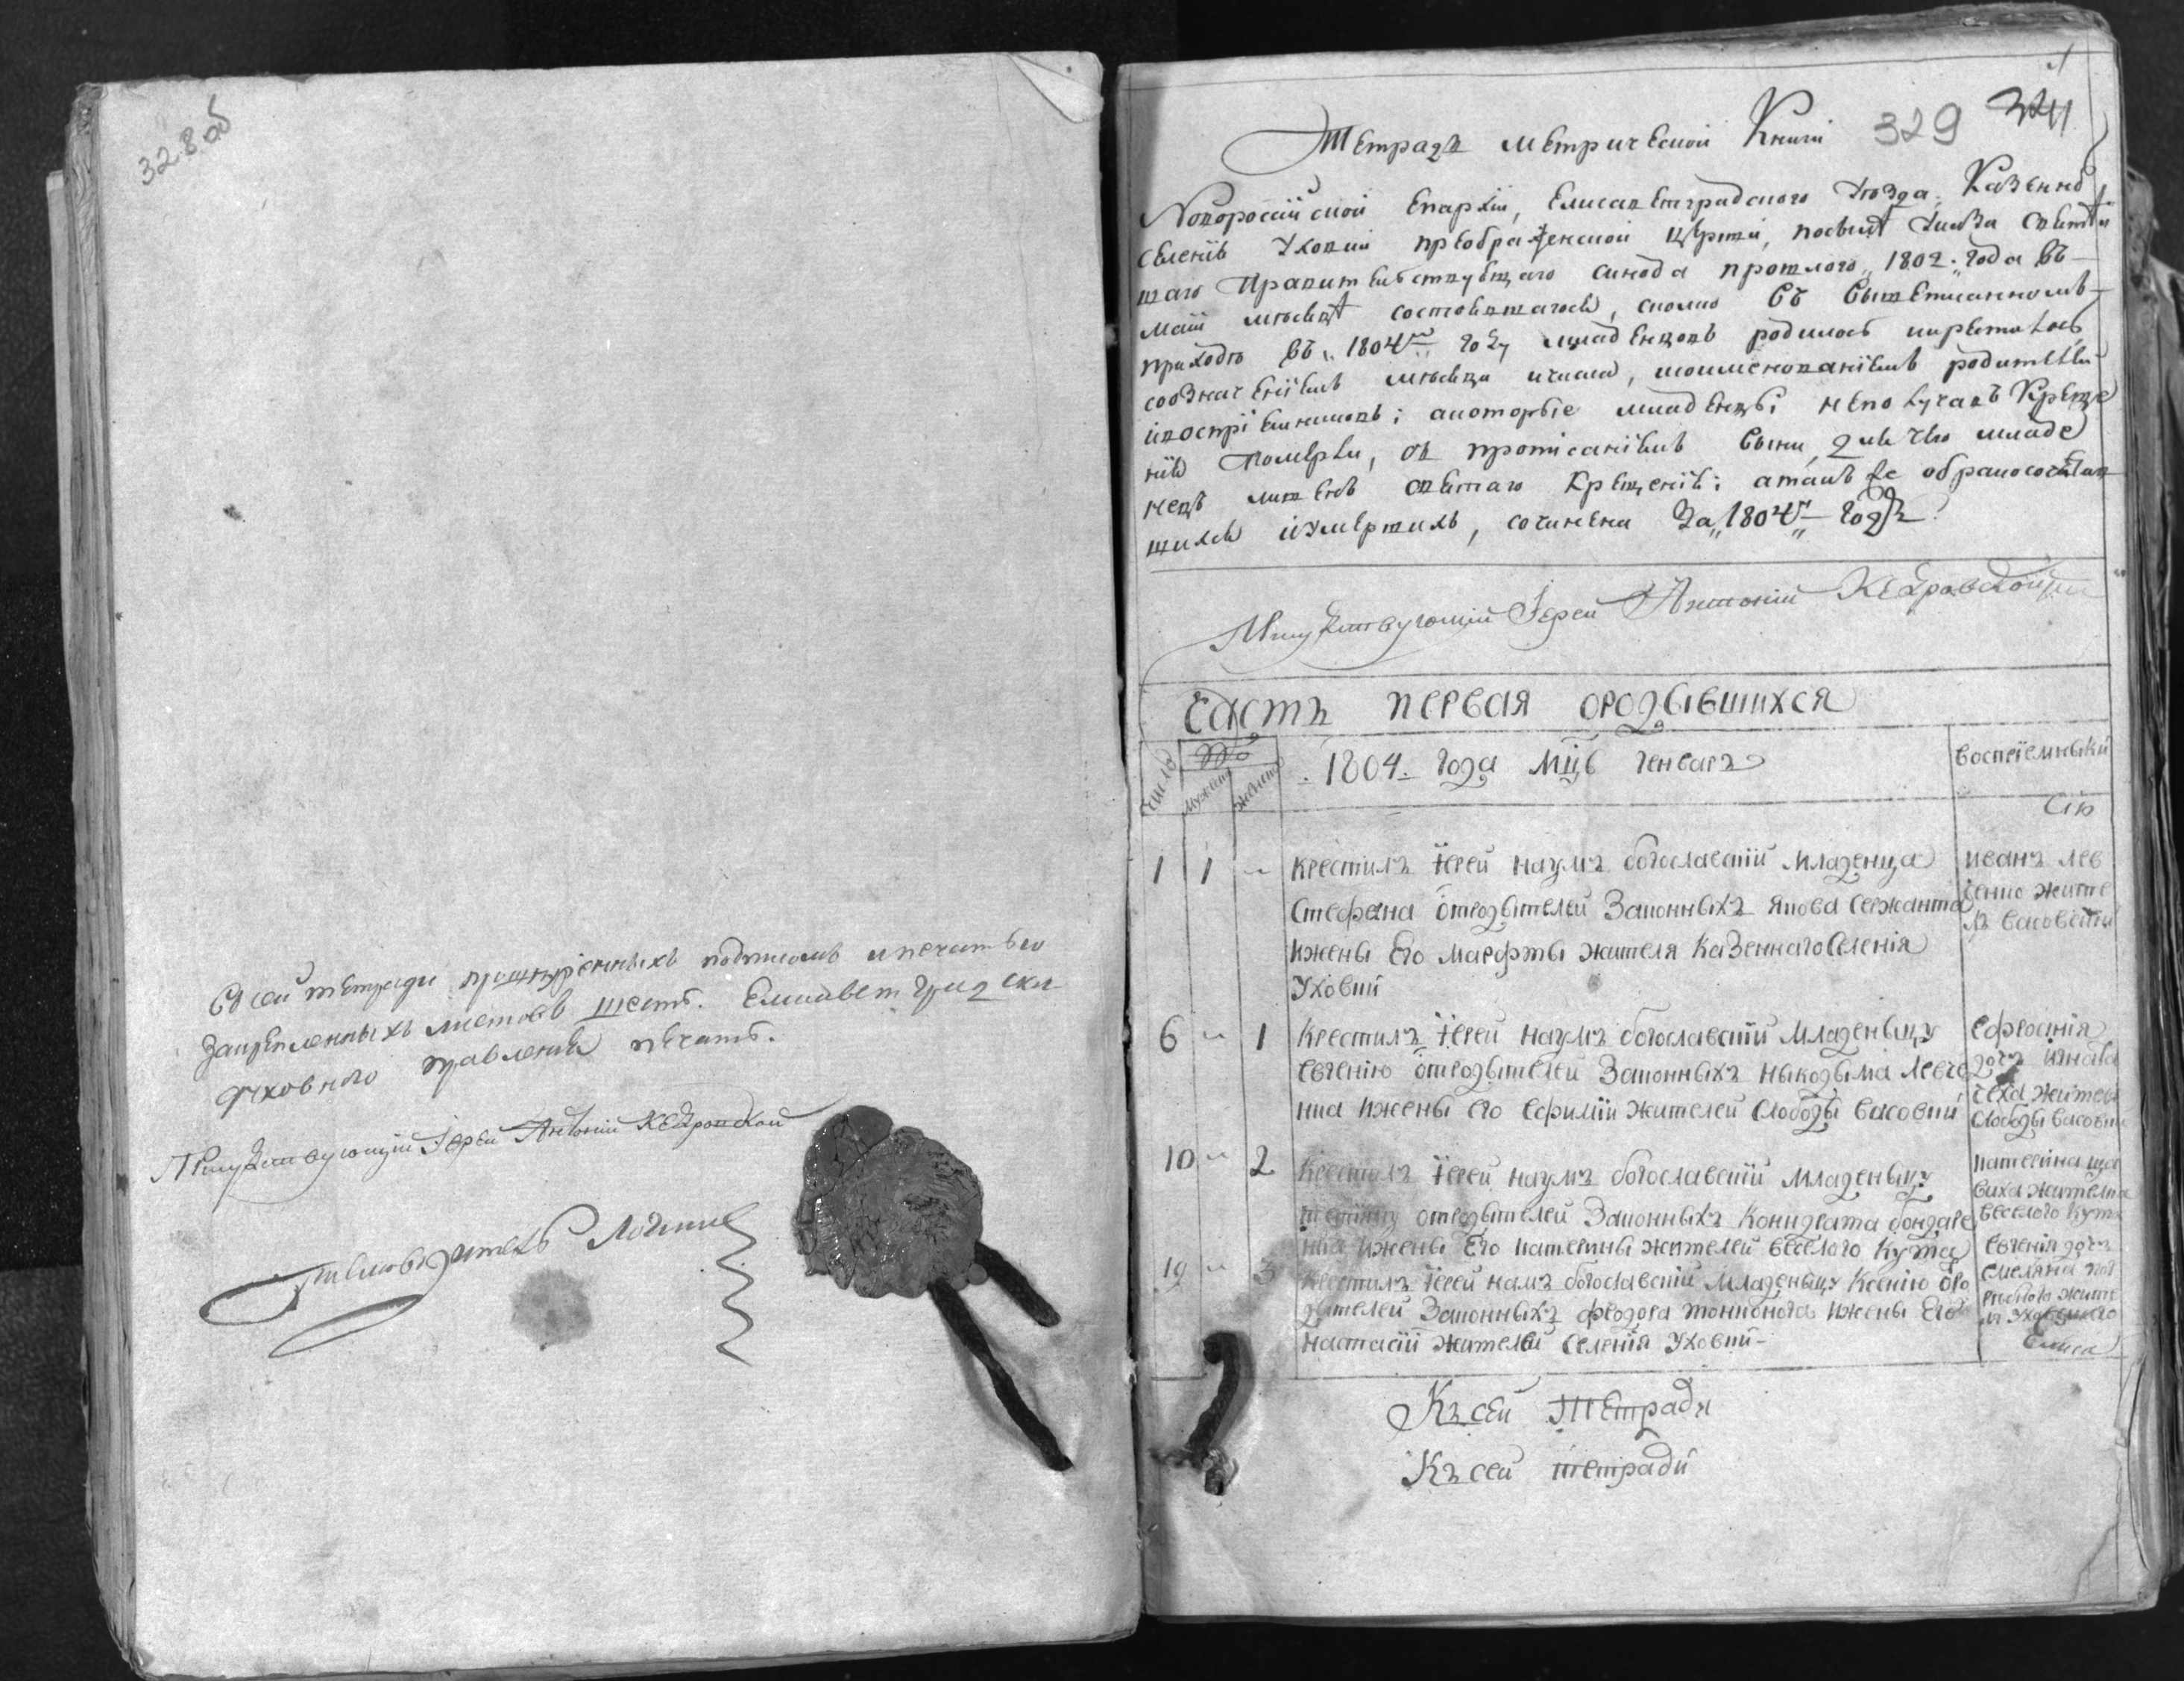 328 об
Въ сей тетради прошнуренныхъ подписомъ и печатью
закрепленныхъ листовъ шесть. Елисаветградска
духовного правления печать.
Присутствующій Іерей Антоній Кедровской
1
329 324
Тетрадь метрической Книги
Новоросійской Епархіи, Елисаветградского уѣзда, Казенно
селенія Уховки преображенской церкви, по силѣ указа святѣй
шаго Правительствующаго синода прошлого 1802. года въ
маіи месяцѣ состоявшагося, сколко въ вышеписанномъ
приходѣ въ 1804м году младенцовъ родилось и крестилось
со означеніемъ месяца и числа, и поименованіемъ родителей
и воспріемниковъ; а которые младенцы не получавъ Креще
нія померли, съ прописаніемъ вины, для чего младе
нецъ лишенъ святаго Крещенія; а такъ же о бракосочетав
шихся и умершихъ, сочинена За 1804й годъ
Присутствующій Іерей Антоній Кедровской
Часть первая о родывшихся
Число
мужеска
женска
1804. года мць генварь
воспріемныки
Сію
1 1 крестилъ іерей наумъ богославскій младенца
Стефана отродытелей Законныхъ якова Сержанта
ижены Его Марфты жителя Казенного Селенія
Уховки
иванъ лев
ченко жите
ль васовски
6 1 крестилъ іерей наумъ богославскій младеныцу
Евгенію отродытелей Законныхъ никодыма левче
нка ижены его Ефиміи жителей Слободы васовки
Ефросинія
дочъ игната
чеха жител
слободы васовки
10 2 Крестилъ іерей наумъ богославскій младеныцу
отродытелей Законныхъ Кондрата бондаре
нка ижены Его катерины жителей веселого Кута
катерина
жителка
веселого кута
19 3 Крестилъ іерей наумъ богославскій младеныцу Ксенію отро
дытелей Законныхъ феодора ижены Его
настасіи жителей Селенія Уховки
Евгенія дочъ
Емеляна
жите
Елиса
Къ сей Тетради
Къ сей тетради